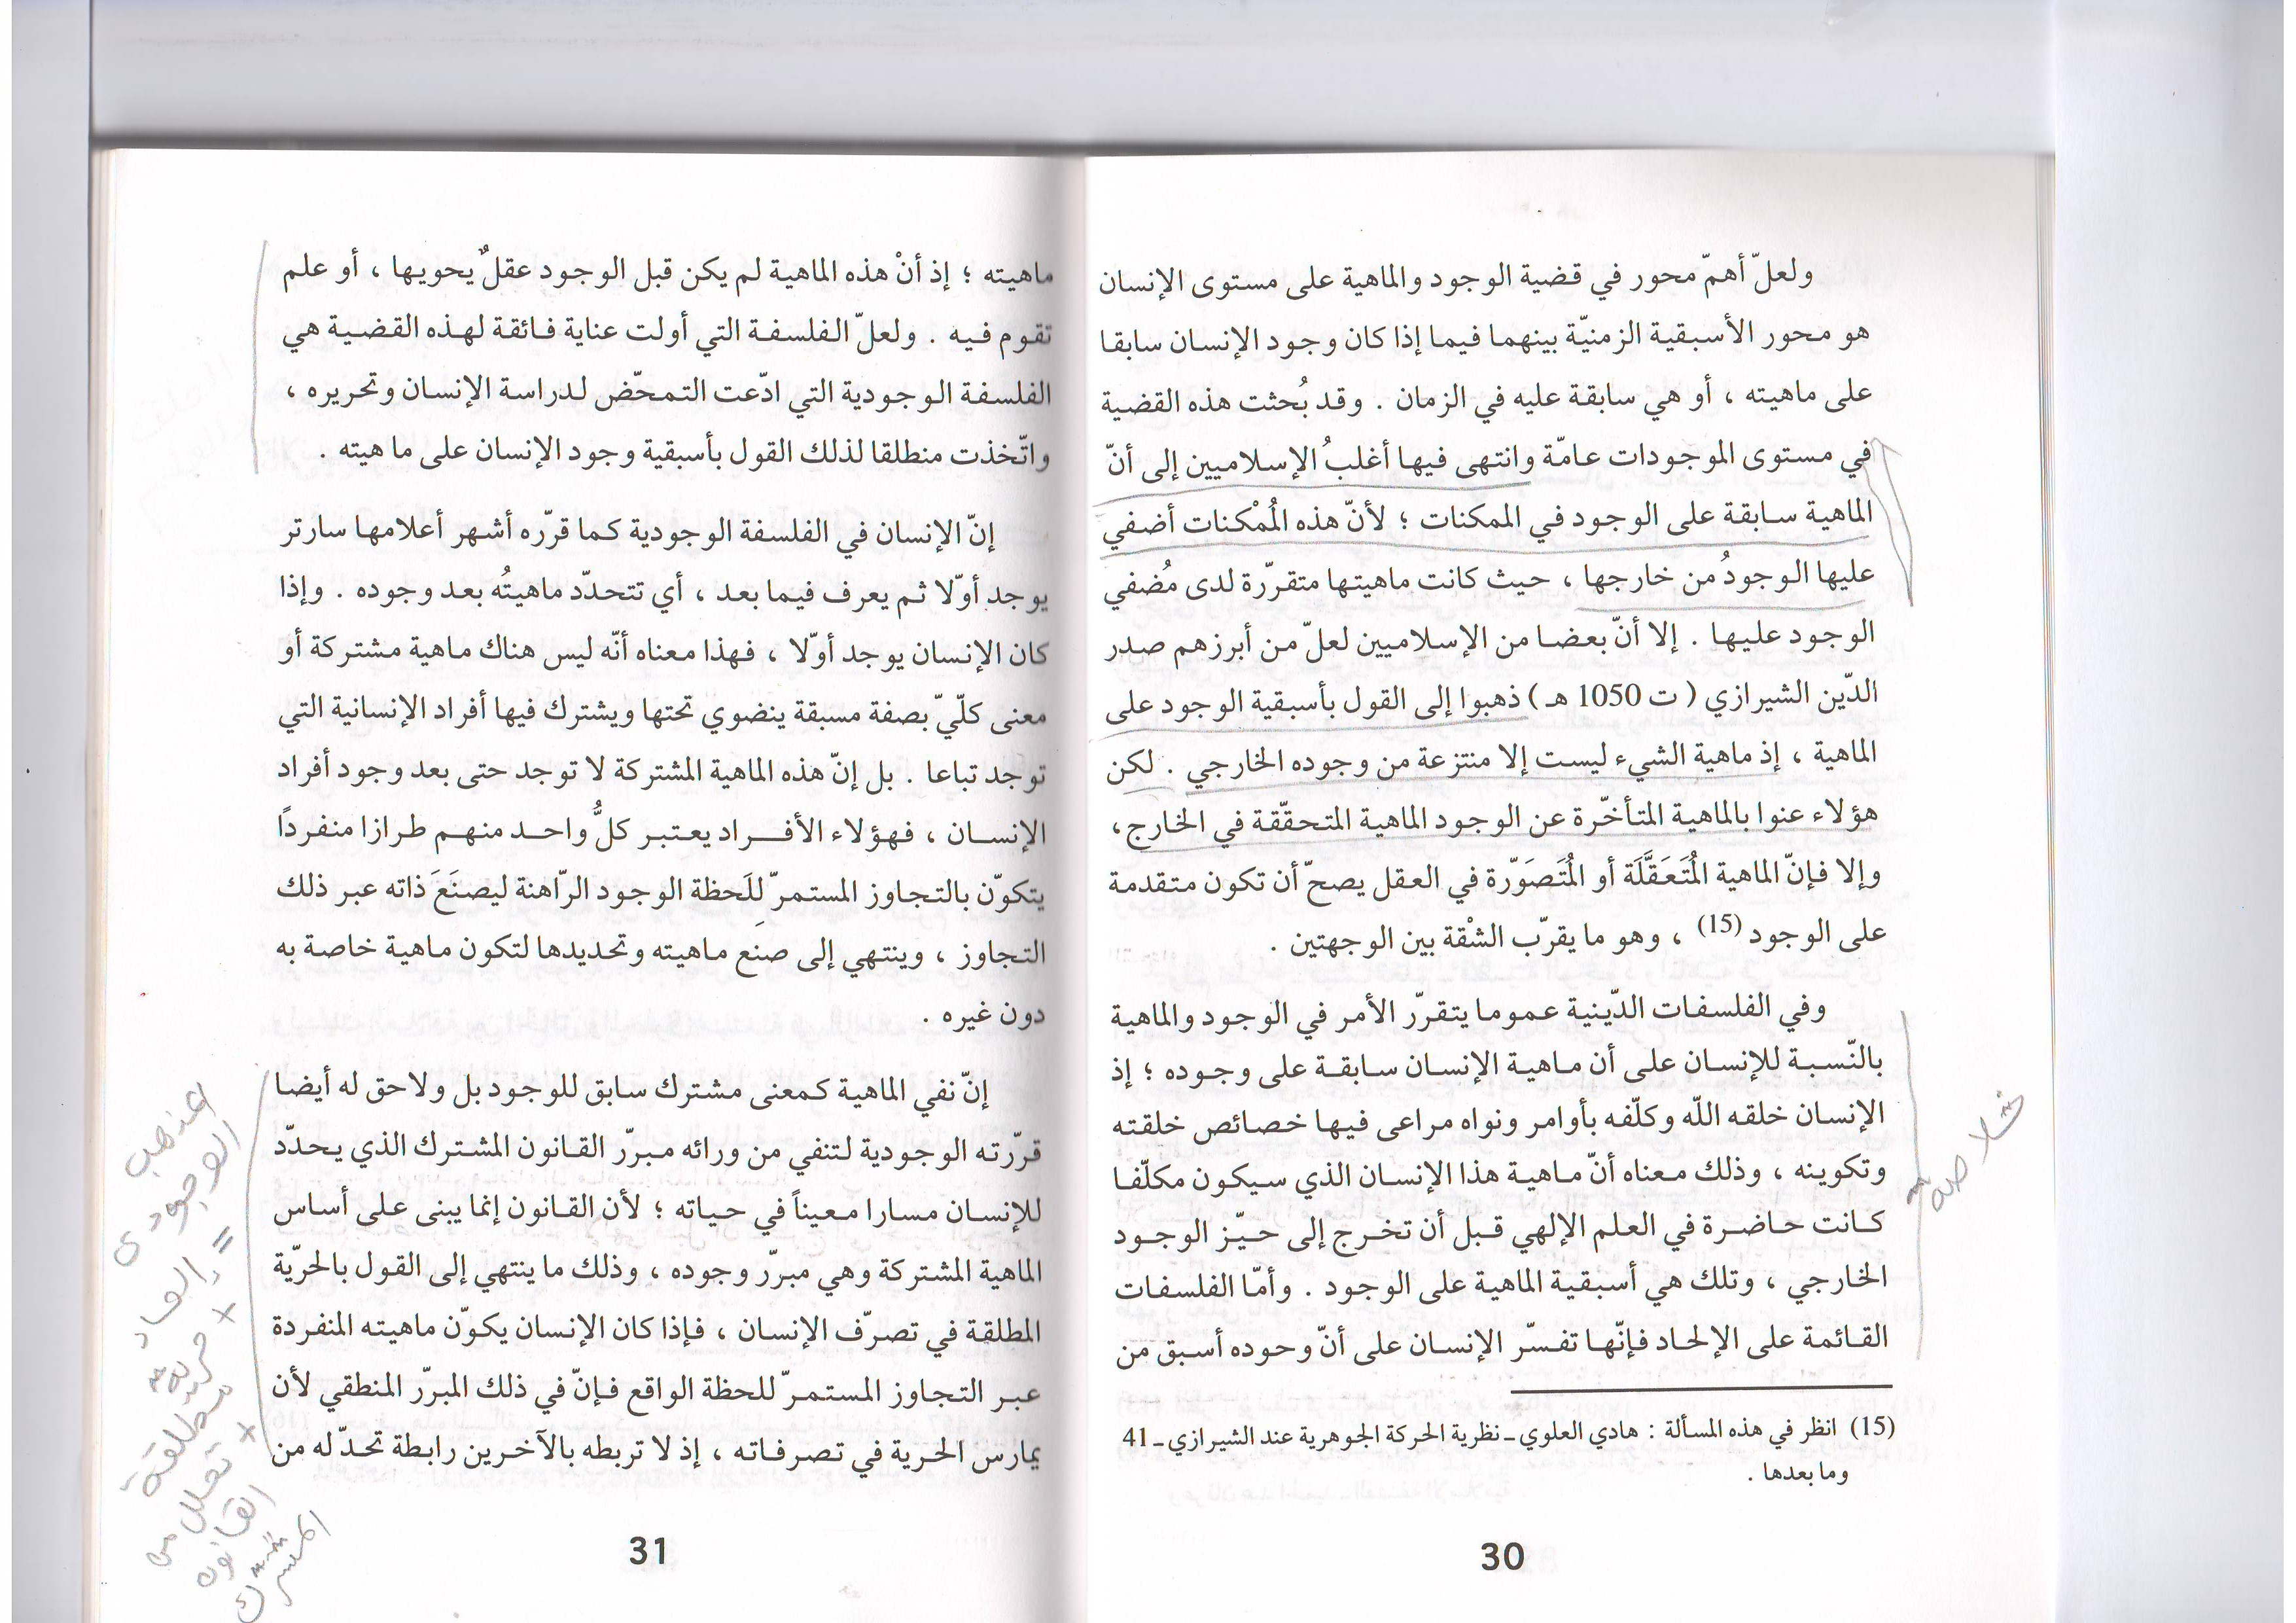 ولعلّ أهمّ محور في قضية الوجود والماهية على مستوى الإنسان
هو محور الأسبقية الزمنيّة بينهما فيما إذا كان وجود الإنسان سابقا
على ماهيته ، أو هي سابقة عليه في الزمان . وقد بُحثت هذه القضية
في مستوى الموجودات عامّة وانتهى فيها أغلبُ الإسلاميين إلى أنّ
الماهية سابقة على الوجود في الممكنات ؛ لأنّ هذه المُمْكنات أضفي
عليها الوجودُ من خارجها ، حيث كانت ماهيتها متقرّرة لدى مُضفي
الوجود عليها . إلا أنّ بعضا من الإسلاميين لعلّ من أبرزهم صدر
الدّين الشيرازي ( ت 1050 هـ ) ذهبوا إلى القول بأسبقية الوجود على
الماهية ، إذ ماهية الشيء ليست إلا منتزعة من وجوده الخارجي . لكن
هؤلاء عنوا بالماهية المتأخّرة عن الوجود الماهية المتحقّقة في الخارج ،
وإلا فإنّ الماهية المُتَعَقَّلَة أو المُتَصَوّرة في العقل يصحّ أن تكون متقدمة
على الوجود (15) ، وهو ما يقرّب الشقْة بين الوجهتين .
وفي الفلسفات الدّينية عموما يتقرّر الأمر في الوجود والماهية
بالنّسبة للإنسان على أن ماهية الإنسان سابقة على وجوده ؛ إذ
الإنسان خلقه اللّه وكلّفه بأوامر ونواه مراعى فيها خصائص خلقته
وتكوينه ، وذلك معناه أنّ ماهية هذا الإنسان الذي سيكون مكلّفا
كانت حاضرة في العلم الإلهي قبل أن تخرج إلى حيّز الوجود
الخارجي ، وتلك هي أسبقية الماهية على الوجود . وأمّا الفلسفات
القائمة على الإلحاد فإنّها تفسّر الإنسان على أنّ وحوده أسبق من
(15) انظر في هذه المسألة : هادي العلوي ـ نظرية الحركة الجوهرية عند الشيرازي ـ 41
وما بعدها .
30
خلاصة
ماهيته ؛ إذ أنْ هذه الماهية لم يكن قبل الوجود عقلٌ يحويها ، أو علم
تقوم فيه . ولعلّ الفلسفة التي أولت عناية فائقة لهذه القضية هي
الفلسفة الوجودية التي ادّعت التمحّض لدراسة الإنسان وتحريره ،
واتّخذت منطلقا لذلك القول بأسبقية وجود الإنسان على ماهيته .
إنّ الإنسان في الفلسفة الوجودية كما قرّره أشهر أعلامها سارتر
يوجد أوّلا ثم يعرف فيما بعد ، أي تتحدّد ماهيتُه بعد وجوده . وإذا
كان الإنسان يوجد أوّلا ، فهذا معناه أنّه ليس هناك ماهية مشتركة أو
معنى كلّيّ بصفة مسبقة ينضوي تحتها ويشترك فيها أفراد الإنسانية التي
توجد تباعا . بل إنّ هذه الماهية المشتركة لا توجد حتى بعد وجود أفراد
الإنسان ، فهؤلاء الأفراد يعتبر كلُّ واحد منهم طرازا منفردًا
يتكوّن بالتجاوز المستمرّ للَحظة الوجود الرّاهنة ليصنَعَ ذاته عبر ذلك
التجاوز ، وينتهي إلى صنَع ماهيته وتحديدها لتكون ماهية خاصة به
دون غيره .
إنّ نفي الماهية كمعنى مشترك سابق للوجود بل ولاحق له أيضا
قرّرته الوجودية لتنفي من ورائه مبرّر القانون المشترك الذي يحدّد
للإنسان مسارا معيناً في حياته ؛ لأن القانون إنما يبنى على أساس
الماهية المشتركة وهي مبرّر وجوده ، وذلك ما ينتهي إلى القول بالحرّية
المطلقة في تصرّف الإنسان ، فإذا كان الإنسان يكوّن ماهيته المنفردة
عبر التجاوز المستمرّ للحظة الواقع فإنّ في ذلك المبرّر المنطقي لأن
يمارس الحرية في تصرفاته ، إذ لا تربطه بالآخرين رابطة تحدّ له من
31
الوجودي
=
+ حرية
مطلقة
+ تحلل من
القانون
المشترك